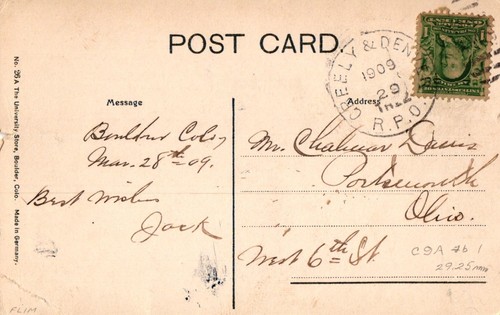 POST CARD.
No. 26 A The University Store, Boulder, Colo. Made in Germany.
Message
Address
GREELY & DEN
1909
29
R.P.O.
Boulder Colo,
Mar. 28th 09.
Best Wishes
Jack
Mr. Chalmer Davis
Portsmouth
Ohio.
West 6th St.
C9A #6 1
29.25mm
FLIM